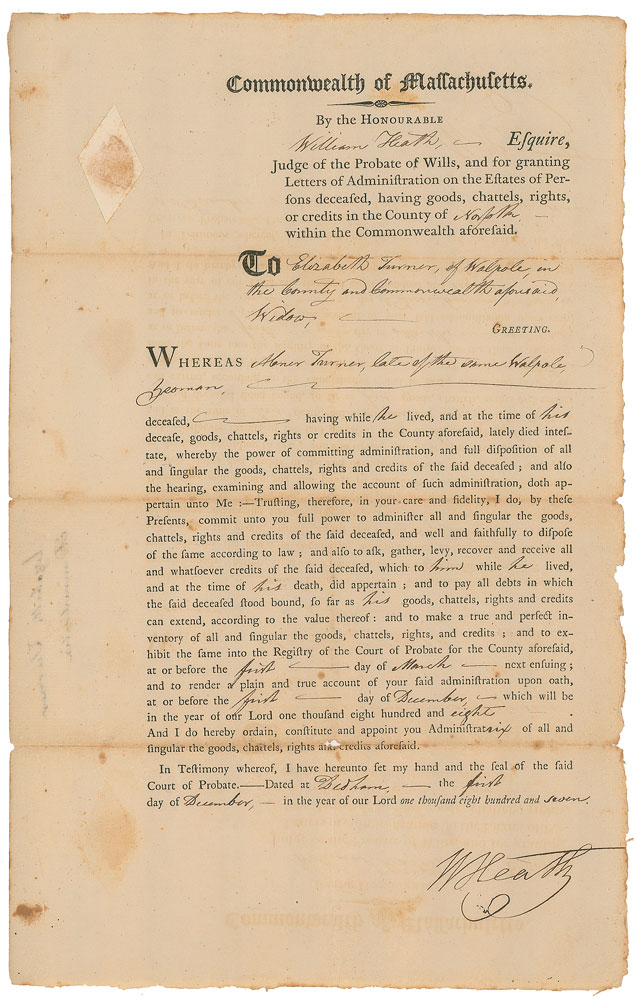 Commonwealth of Maſſachuſetts.
By the HONOURABLE
William Heath, Eſquire,
Judge of the Probate of Wills, and for granting
Letters of Adminiſtration on the Eſtates of Per-
ſons deceaſed, having goods, chattels, rights,
or credits in the County of Norfolk,
within the Commonwealth aforeſaid.
To Elizabeth Turner, of Walpole, in
the County and Commonwealth aforesaid,
Widow,
GREETING.
WHEREAS Turner, late of the same Walpole,
Yeoman,
deceaſed, having while he lived, and at the time of his
deceaſe, goods, chattels, rights or credits in the County aforeſaid, lately died inteſ-
tate, whereby the power of committing adminiſtration, and full diſpoſition of all
and ſingular the goods, chattels, rights and credits of the ſaid deceaſed ; and alſo
the hearing, examining and allowing the account of ſuch adminiſtration, doth ap-
pertain unto Me :—Truſting, therefore, in your care and fidelity, I do, by theſe
Preſents, commit unto you full power to adminiſter all and ſingular the goods,
chattels, rights and credits of the ſaid deceaſed, and well and faithfully to diſpoſe
of the ſame according to law ; and alſo to aſk, gather, levy, recover and receive all
and whatſoever credits of the ſaid deceaſed, which to him while he lived,
and at the time of his death, did appertain ; and to pay all debts in which
the ſaid deceaſed ſtood bound, ſo far as his goods, chattels, rights and credits
can extend, according to the value thereof : and to make a true and perfect in-
ventory of all and ſingular the goods, chattels, rights, and credits ; and to ex-
hibit the ſame into the Regiſtry of the Court of Probate for the County aforeſaid,
at or before the first day of March next enſuing ;
and to render a plain and true account of your ſaid adminiſtration upon oath,
at or before the first day of December, which will be
in the year of our Lord one thouſand eight hundred and eight .
And I do hereby ordain, conſtitute and appoint you Adminiſtratrix of all and
ſingular the goods, chattels, rights and credits aforeſaid.
In Teſtimony whereof, I have hereunto ſet my hand and the ſeal of the ſaid
Court of Probate.—Dated at Dedham, the first
day of December, in the year of our Lord one thouſand eight hundred and seven.
W Heath